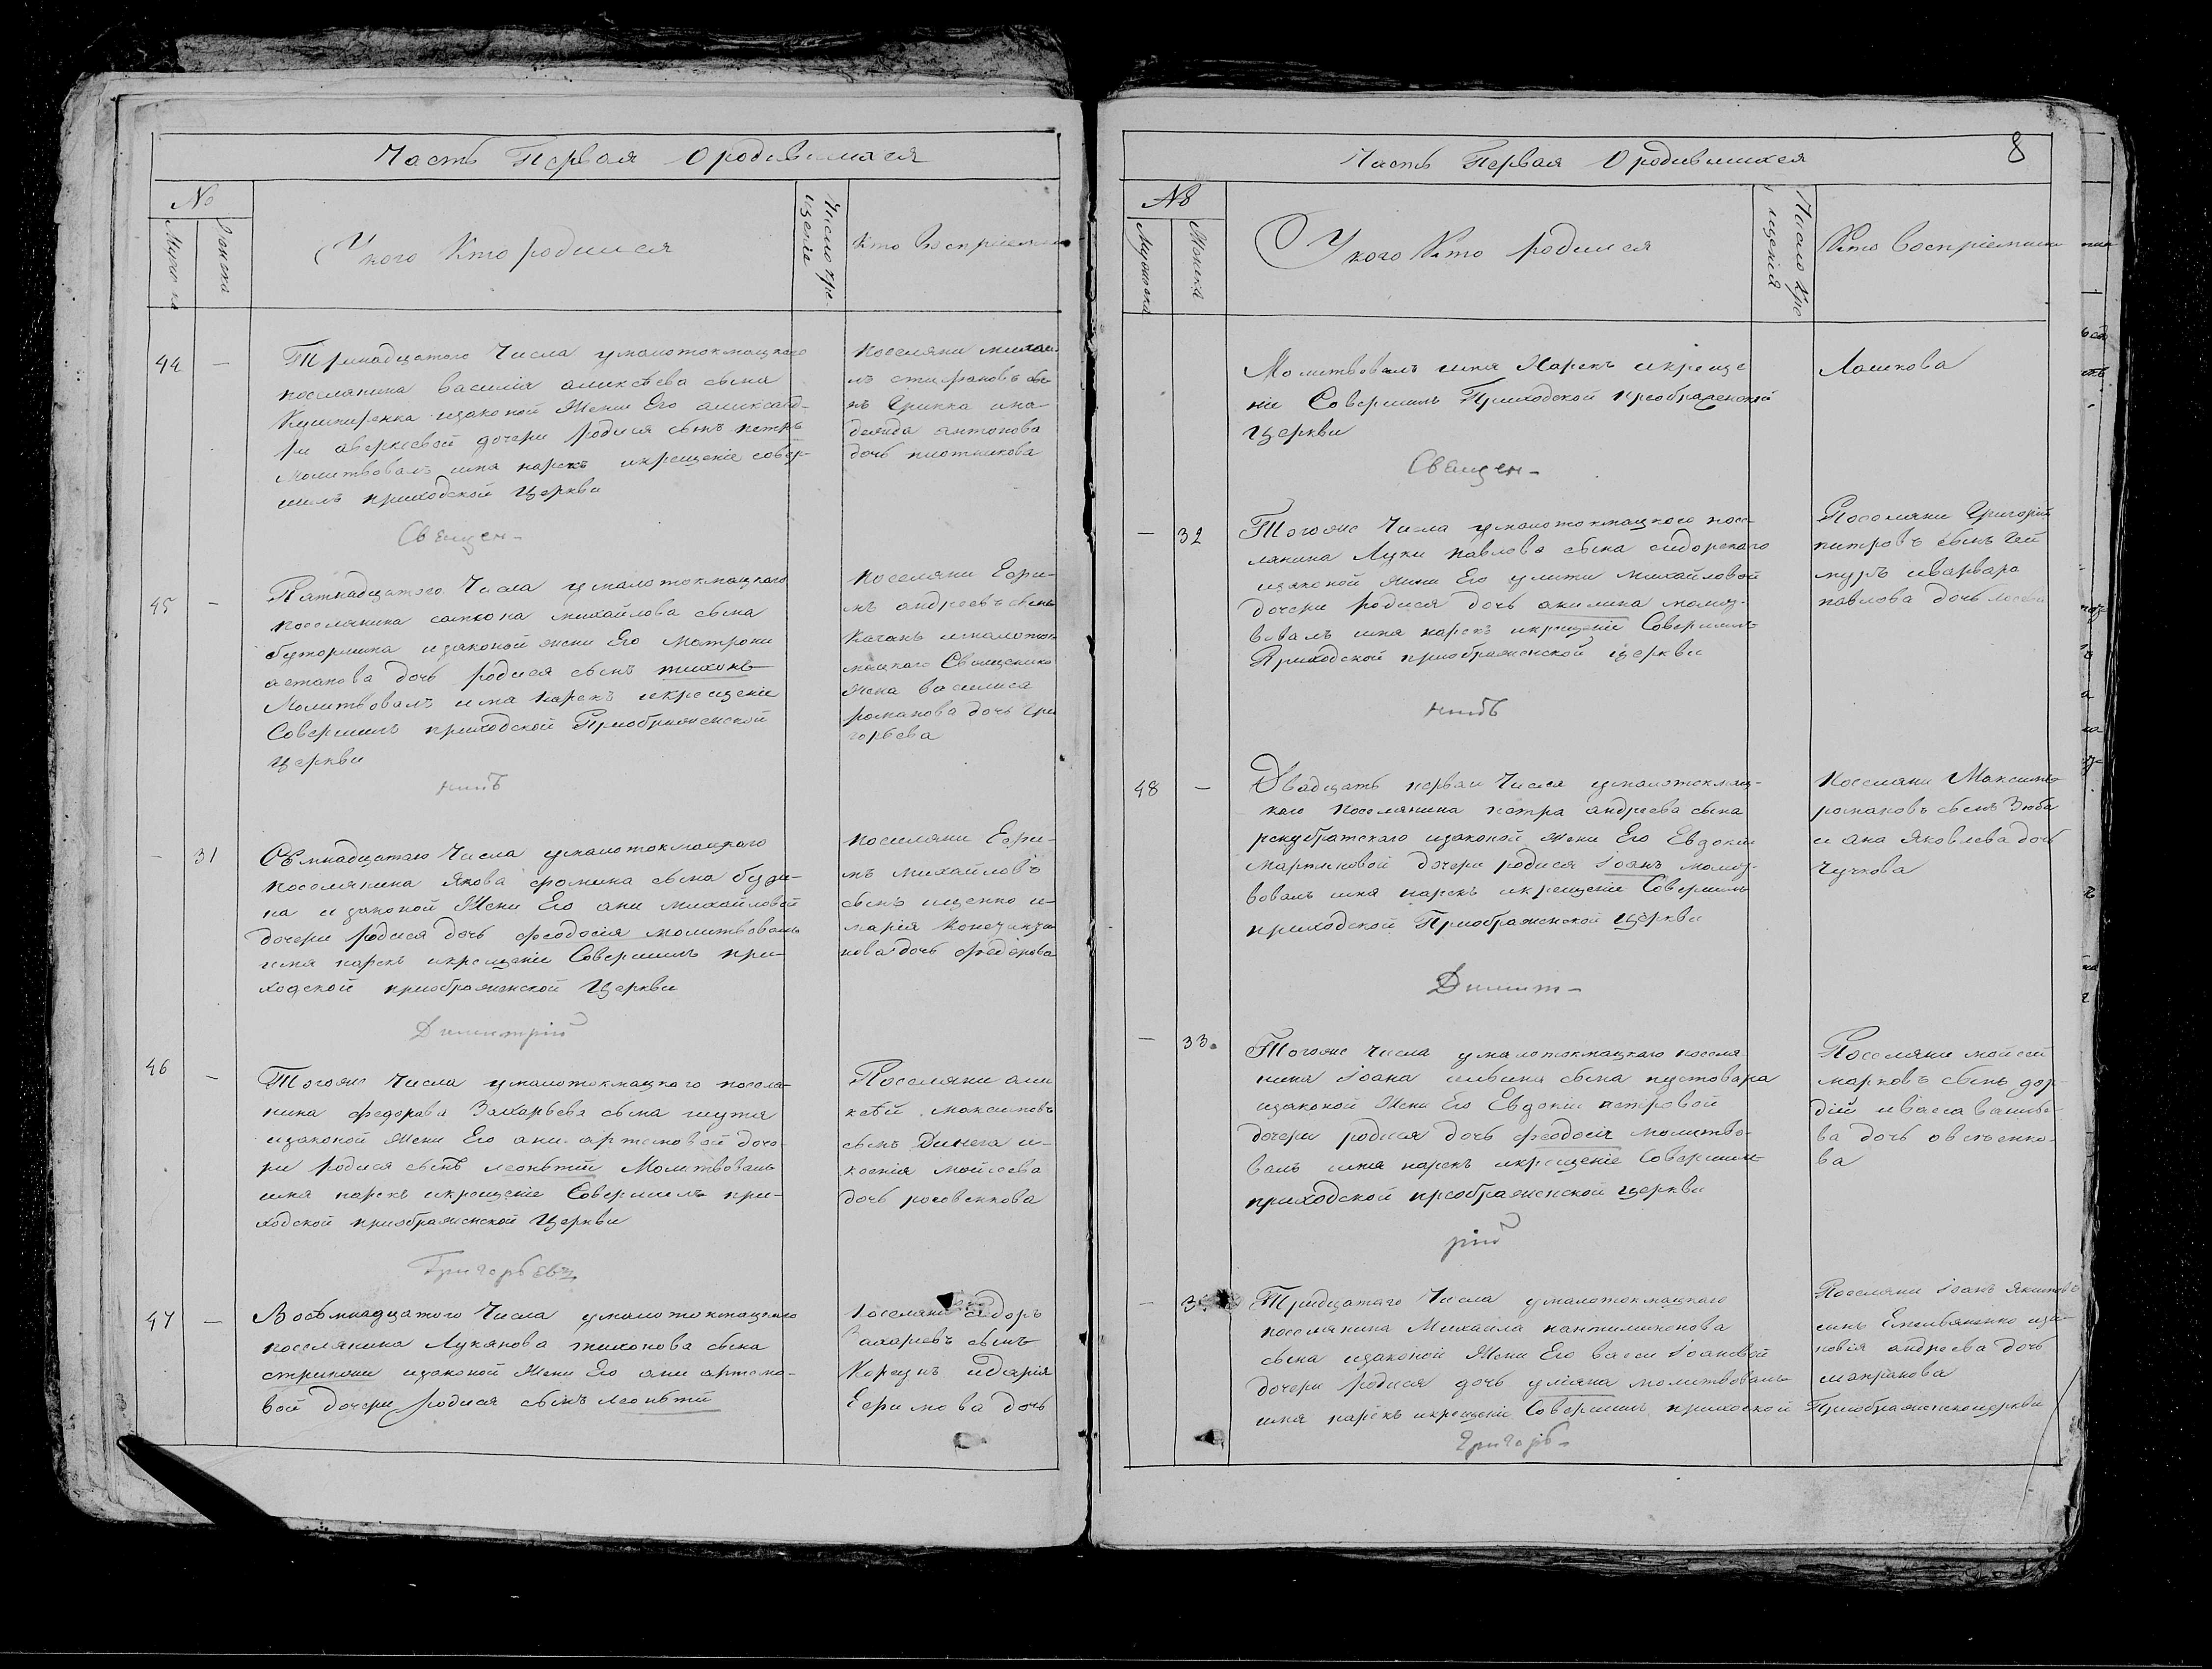 Часть Первая О родившихся
№
Мужска
Женска
У кого Кто родился
Число кре-
щенія
Кто Воспріемни
44 —
Тринадцатого Числа умалотокмацкого
поселянина Василія алексѣева сына
Кушниренка изаконой Жени Его александ-
ри аверкіевой дочери родися сынъ петръ
молитвовалъ имя нарекъ икрещеніе совер-
шилъ приходской Церкви
поселяни михаи
лъ стифановъ сы
нъ Гринка ина
дежда антонова
дочь плотникова
Священ-
45 —
Пятнадцатого Числа умалотокмацкого
поселянина самсона михайлова сына
буторшина изаконой жени Его Матрони
астапова дочь родися сынъ тихонъ
Молитвовалъ имя нарекъ икрещеніе
Совершилъ приходской Приображенской
Церкви
поселяни Ефи-
мъ андреевъ сынъ
Качанъ ималоток
мацкого Священико
жена василиса
романова дочь Гри
горьева
никъ
— 31
Семнадцатаго Числа умалотокмацкого
поселянина Якова фомина сына буди-
на изаконой Жени Его ани михайловой
дочери родися дочь феодосія молитвовалъ
имя нарекъ икрещеніе Совершилъ при-
ходской приображенской Церкви
поселяни Ефи-
мъ михайловъ
сынъ ищенко и
марія Констинти
нова дочь федорова
Димитрій
46 —
Тогоже Числа умалотокмацкого поселя-
нина федорова Захарьева сына шутя
изаконой Жени Его ани артемовой доче-
ри родися сынъ леонтій Молитвовалъ
имя нарекъ икрещеніе Совершилъ при-
ходской приображенской Церкви
Поселяни али
ксѣй максимовъ
сынъ Динега и
ксенія мойсеева
дочь роговенкова
Григорьевъ
47 —
Восѣмнадцатого Числа умалотокмацкого
поселянина Лукянова тихонова сына
стрикони изаконой Жени Его ани артемо-
вой дочери родися сынъ леонтій
поселяни Сидоръ
Захаріевъ сынъ
Корецкъ идарія
Ефимова дочь
8
Часть Первая О родившихся
№
Мужска
Женска
У кого Кто родился
Число кре
щенія
Кто Воспріемники
Молитвовалъ имя Нарекъ икреще
ніе Совершилъ Приходской преображенской
Церкви
Лошкова
Священ-
— 32
Тогоже Числа умалотокмацкого посе-
лянина Луки павлова сына сидорского
изаконой жени Его улити михайловой
дочери родися дочь акилина молит-
вовалъ имя нарекъ икрещеніе Совершилъ
Приходской приображенской церкви
Поселяни Григорій
питровъ сынъ Гей
муръ иварвара
павлова дочь
никъ
48 —
Двадцать первагo Числа умалотокмац-
кого поселянина петра андреева сына
изаконой жени Его Евдокіи
мартиновой дочери родися іоанъ молит-
вовалъ имя нарекъ икрещеніе Совершилъ
приходской Приображенской Церкви
поселяни Максимъ
романовъ сынъ Зюба
и ана Яковлева дочь
Чучкова
Димит-
— 33
Тогоже Числа умалотокмацкого поселя-
нина іоана ильина сына пустовара
изаконой Жени Его Евдокіи петровой
дочери родися дочь феодосія молитво-
валъ имя нарекъ икрещеніе Совершилъ
приходской преображенской церкви
Поселяни мойсей
марковъ сынъ гор-
дій ивасса василье-
ва дочь овсъенко-
ва
рій
— 3
Тридцатаго Числа умалотокмацкого
поселянина Михаила пантилимонова
сына изаконой Жени Его васси іоановой
дочери родися дочь уліяна молитвовалъ
имя нарекъ икрещеніе Совершилъ приходской Приображенскойцеркви
Поселяни іоанъ Якимовъ
сынъ Емельяненко изи-
новія андреева дочь
шапранова
Григорь-